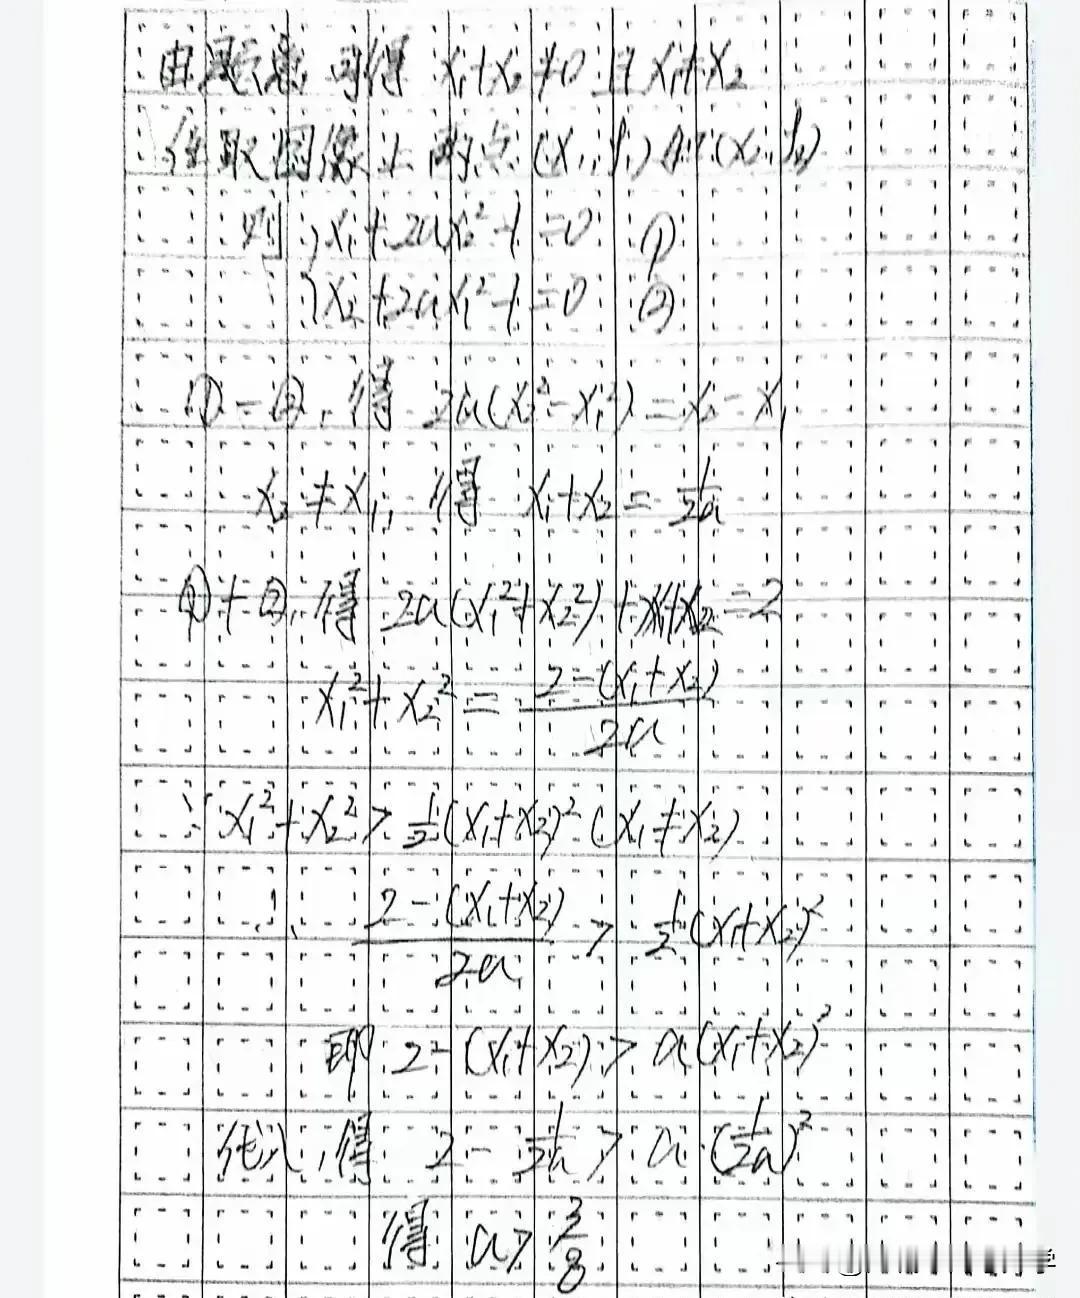 由题意可得 x₁+x₂≠0 且 x₁≠x₂
任取图像上两点(x₁,y₁)和(x₂,y₂)
则 {x₁+2ax₂²-1=0 ①
{x₂+2ax₁²-1=0 ②
①-②,得 2a(x₂²-x₁²)=x₂-x₁
x₂≠x₁,得 x₁+x₂=1/2a
①+②,得 2a(x₁²+x₂²)+x₁+x₂=2
x₁²+x₂²=2-(x₁+x₂)/2a
∵x₁²+x₂²>1/2(x₁+x₂)²(x₁≠x₂)
∴ 2-(x₁+x₂)/2a > 1/2(x₁+x₂)²
即 2-(x₁+x₂)>a(x₁+x₂)²
代入,得 2-1/2a>a·(1/2a)²
得 a>3/8